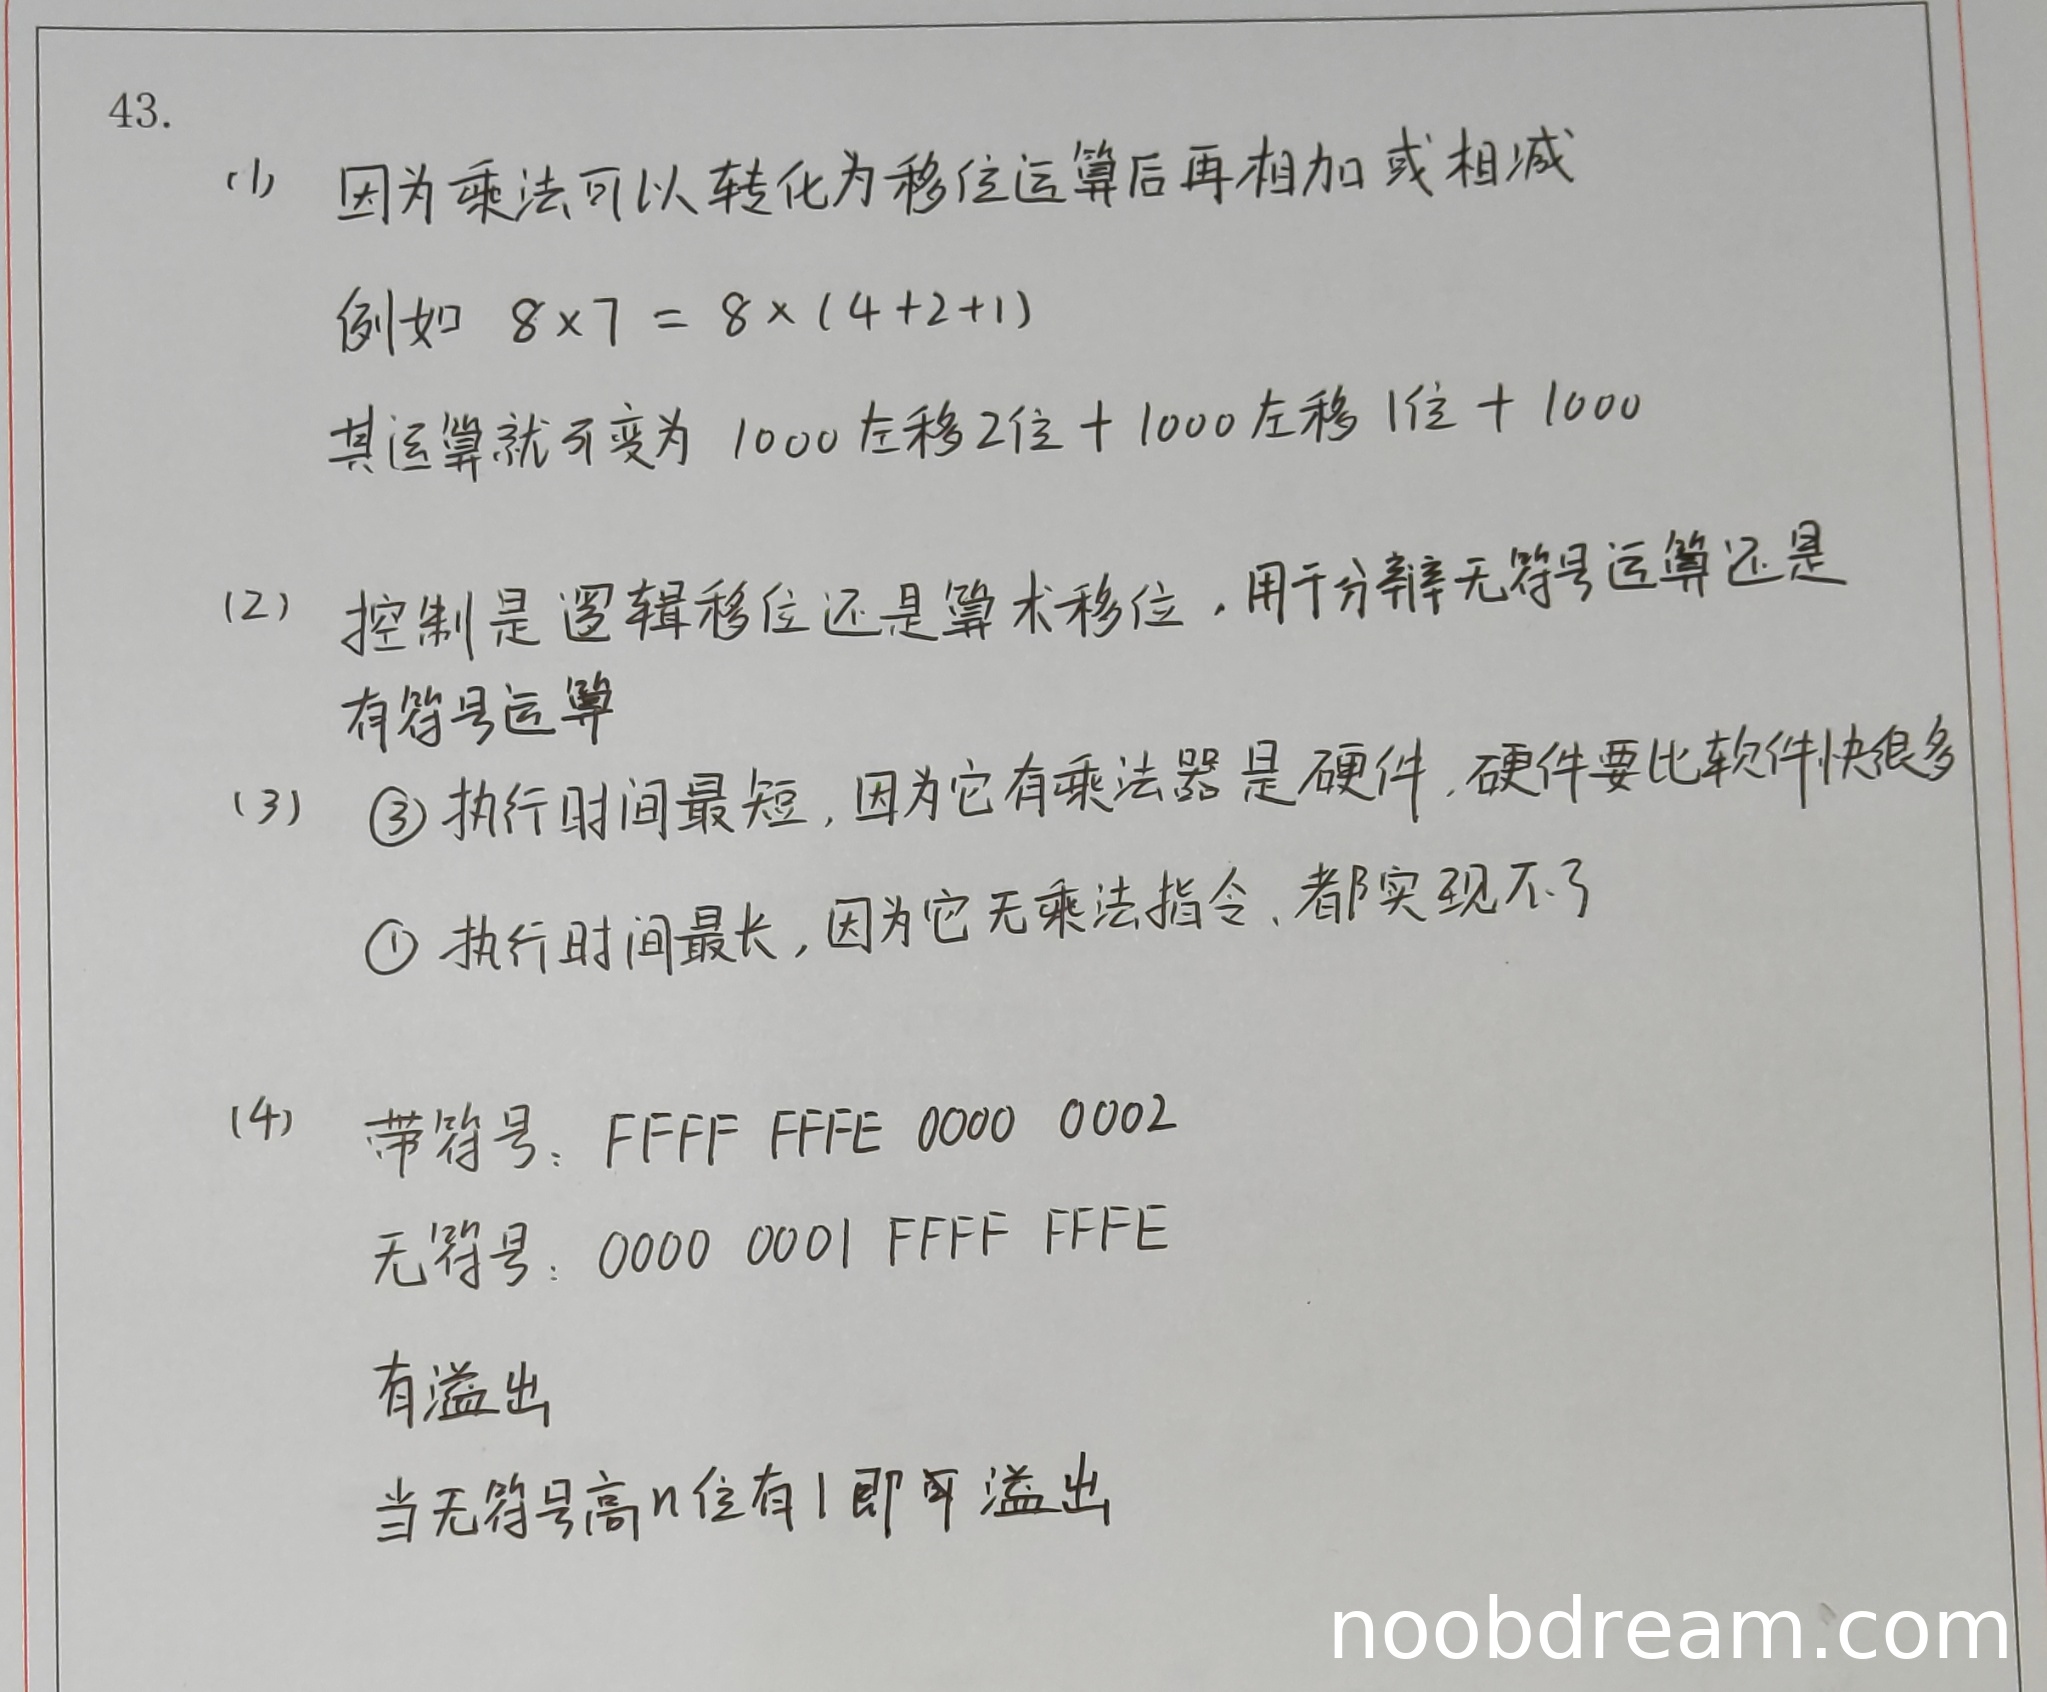 43.
(1) 因为乘法可以转化为移位运算后再相加或相减
例如 8×7 = 8×(4+2+1)
其运算就可变为 1000左移2位 + 1000左移1位 + 1000
(2) 控制是逻辑移位还是算术移位，用于分辨无符号运算还是
有符号运算
(3) ③执行时间最短，因为它有乘法器是硬件，硬件要比软件快很多
①执行时间最长，因为它无乘法指令、都实现不了
(4) 带符号：FFFF FFFE 0000 0002
无符号：0000 0001 FFFF FFFE
有溢出
当无符号高n位有1即可溢出
noobdream.com